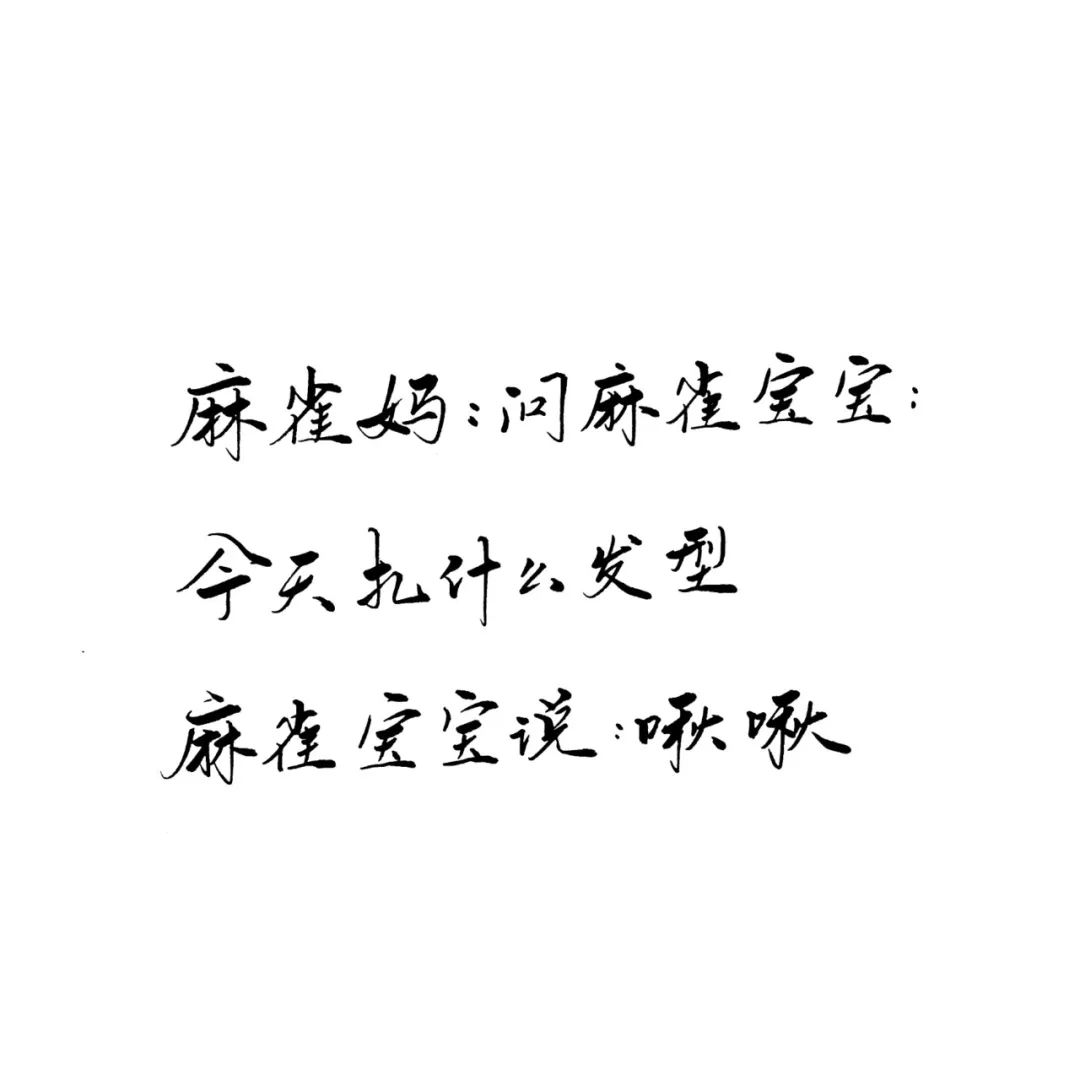 麻雀妈:问麻雀宝宝:
今天扎什么发型
麻雀宝宝说:啾啾